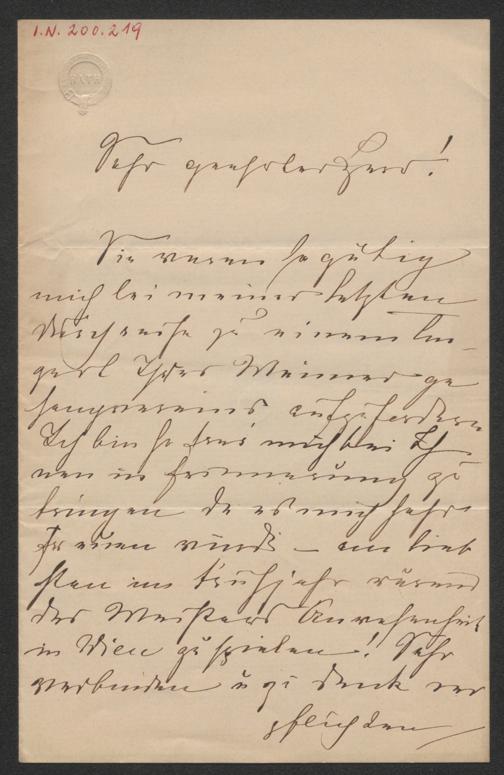 I.N. 200.219
BATH
Sehr geehrter Herr!
Sie waren so gütig
mich bei meiner letzten
Durchreise zu einem Con-
zert Ihres Wiener ge
sangvereins aufzufordern
Ich bin so frei mich bei Ih
nen in Erinnerung zu
bringen da es mich sehr
freuen würde – am lieb
sten im Frühjahr während
des Meisters Anwesenheit
in Wien zu spielen! Sehr
verbinden u zu Dank ver
pflichten